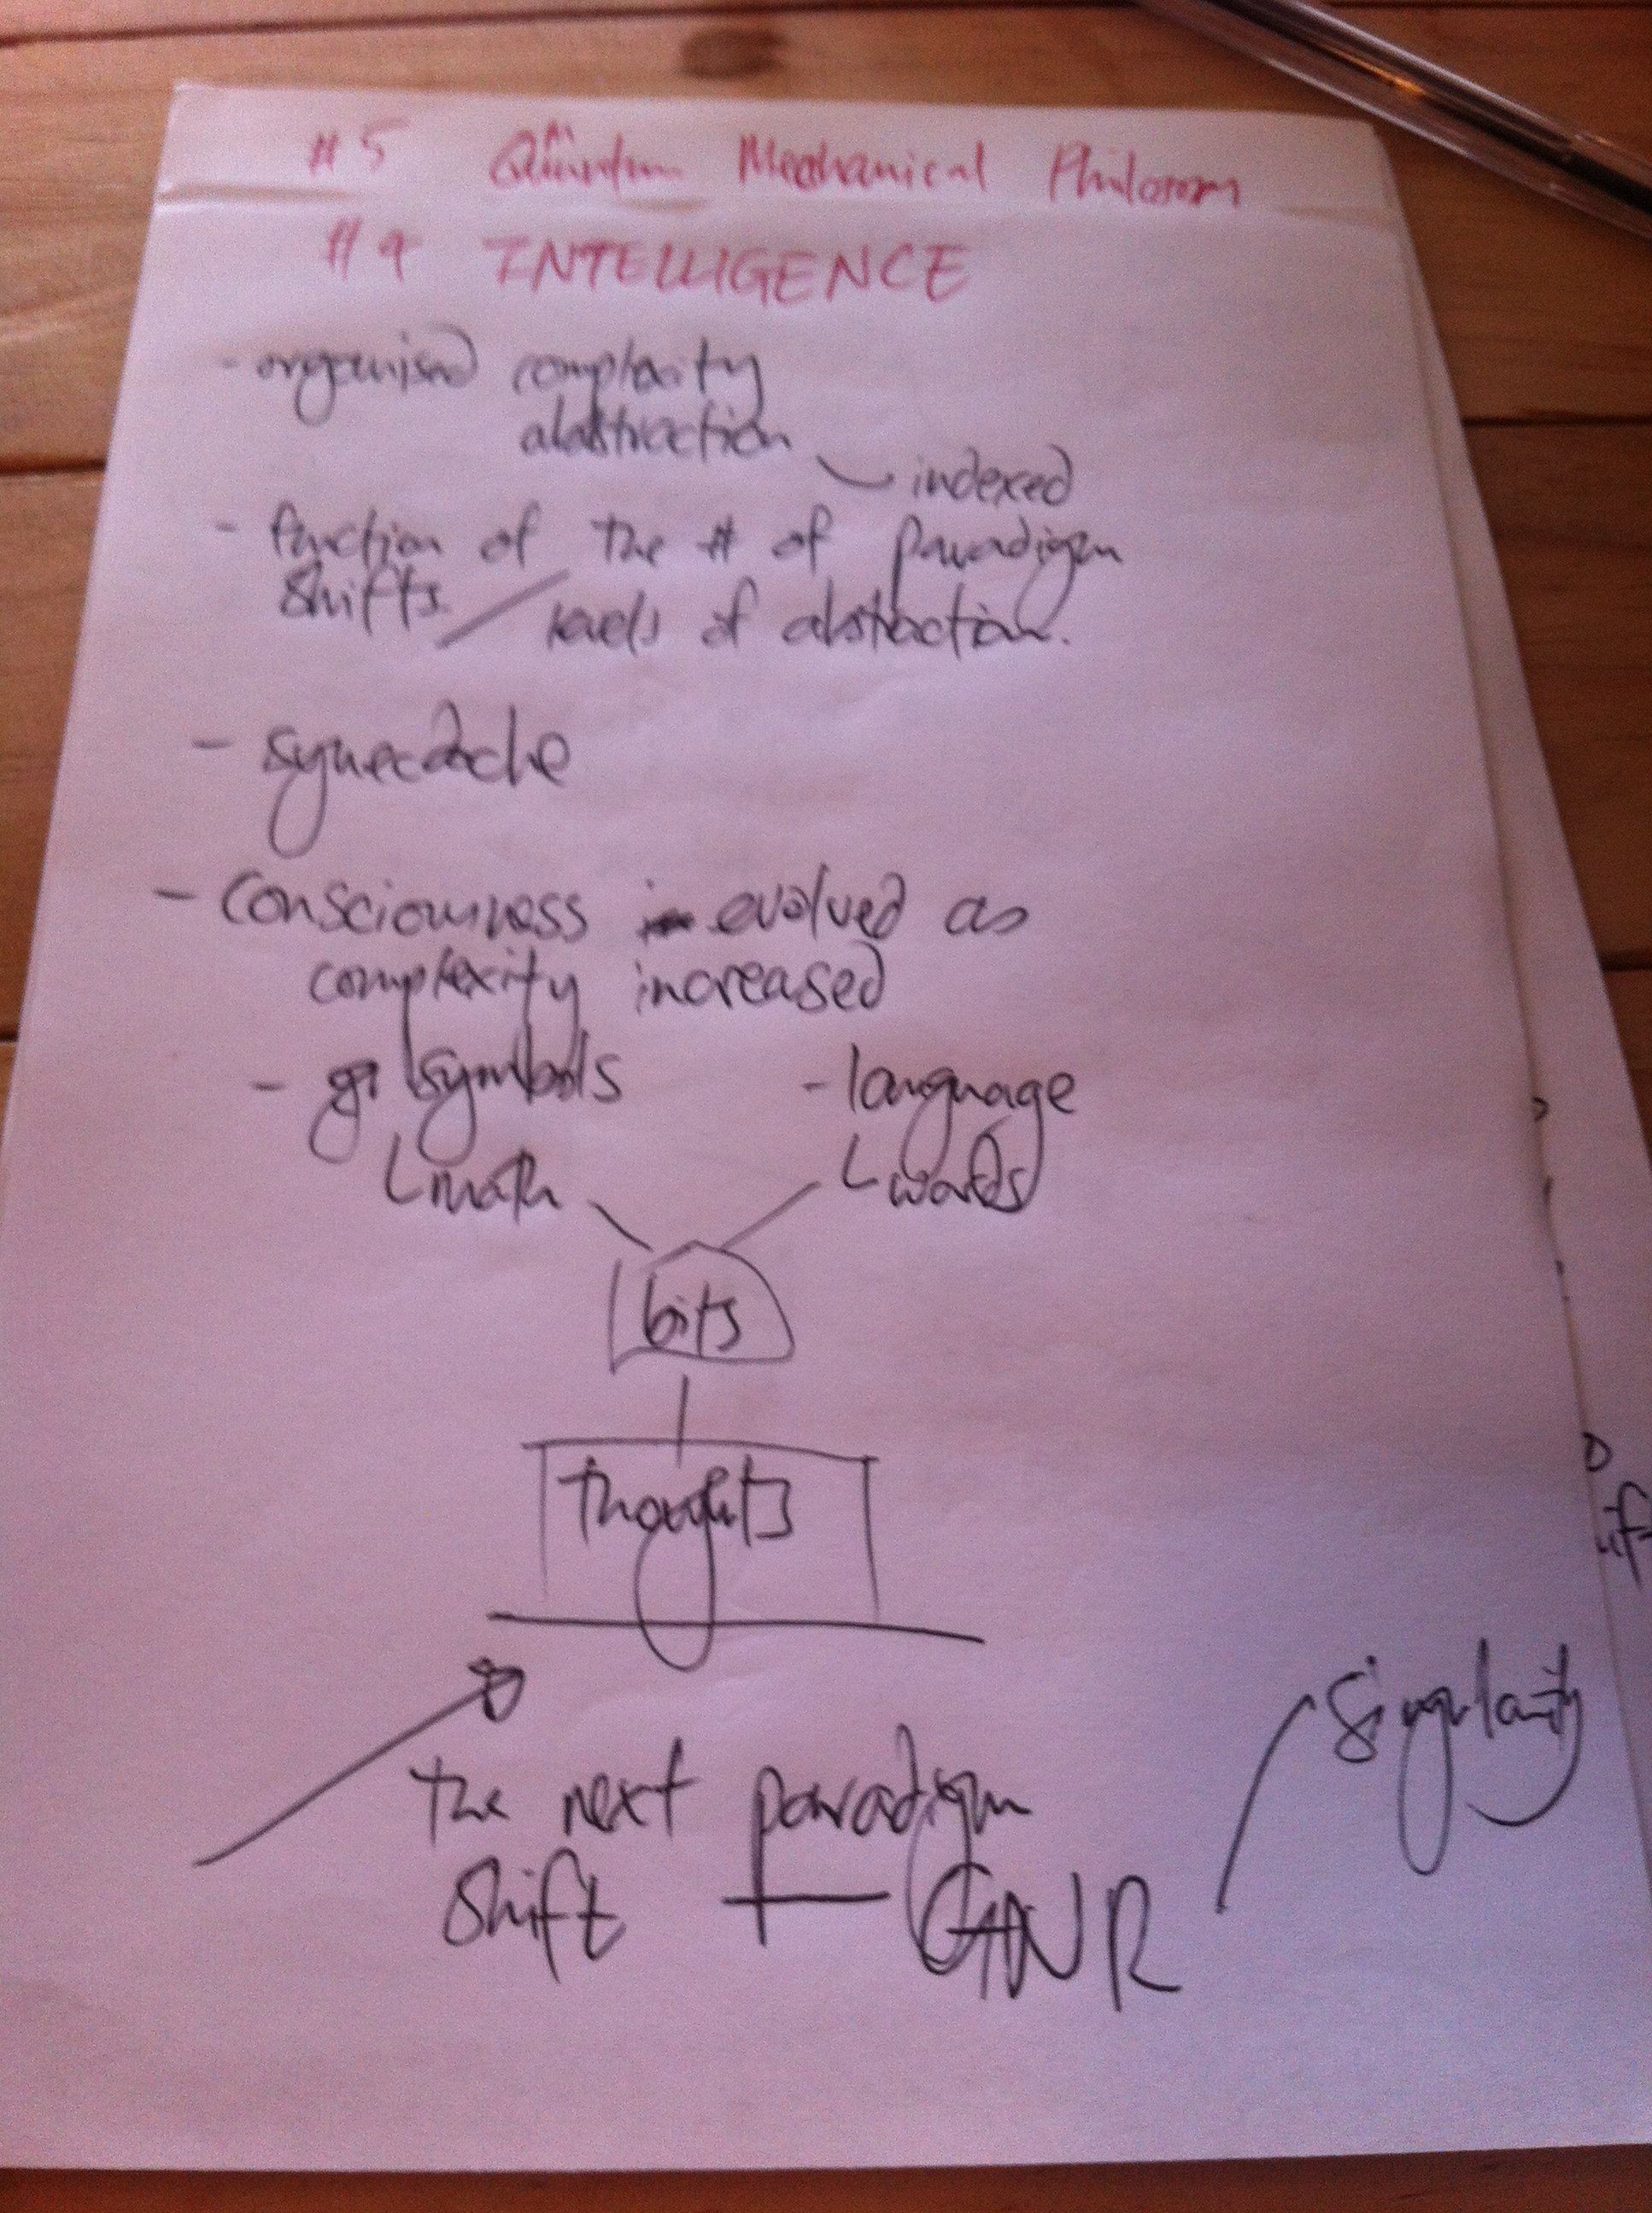 #5 Quantum Mechanical Philosom
#4 INTELLIGENCE
- organised complexity
abstraction
indexed
- function of the # of paradigm
shifts / levels of abstraction.
- synecdoche
- consciousness evolved as
complexity increased
- symbols - language
math words
bits
thoughts
the next paradigm
shift GNR
singularity